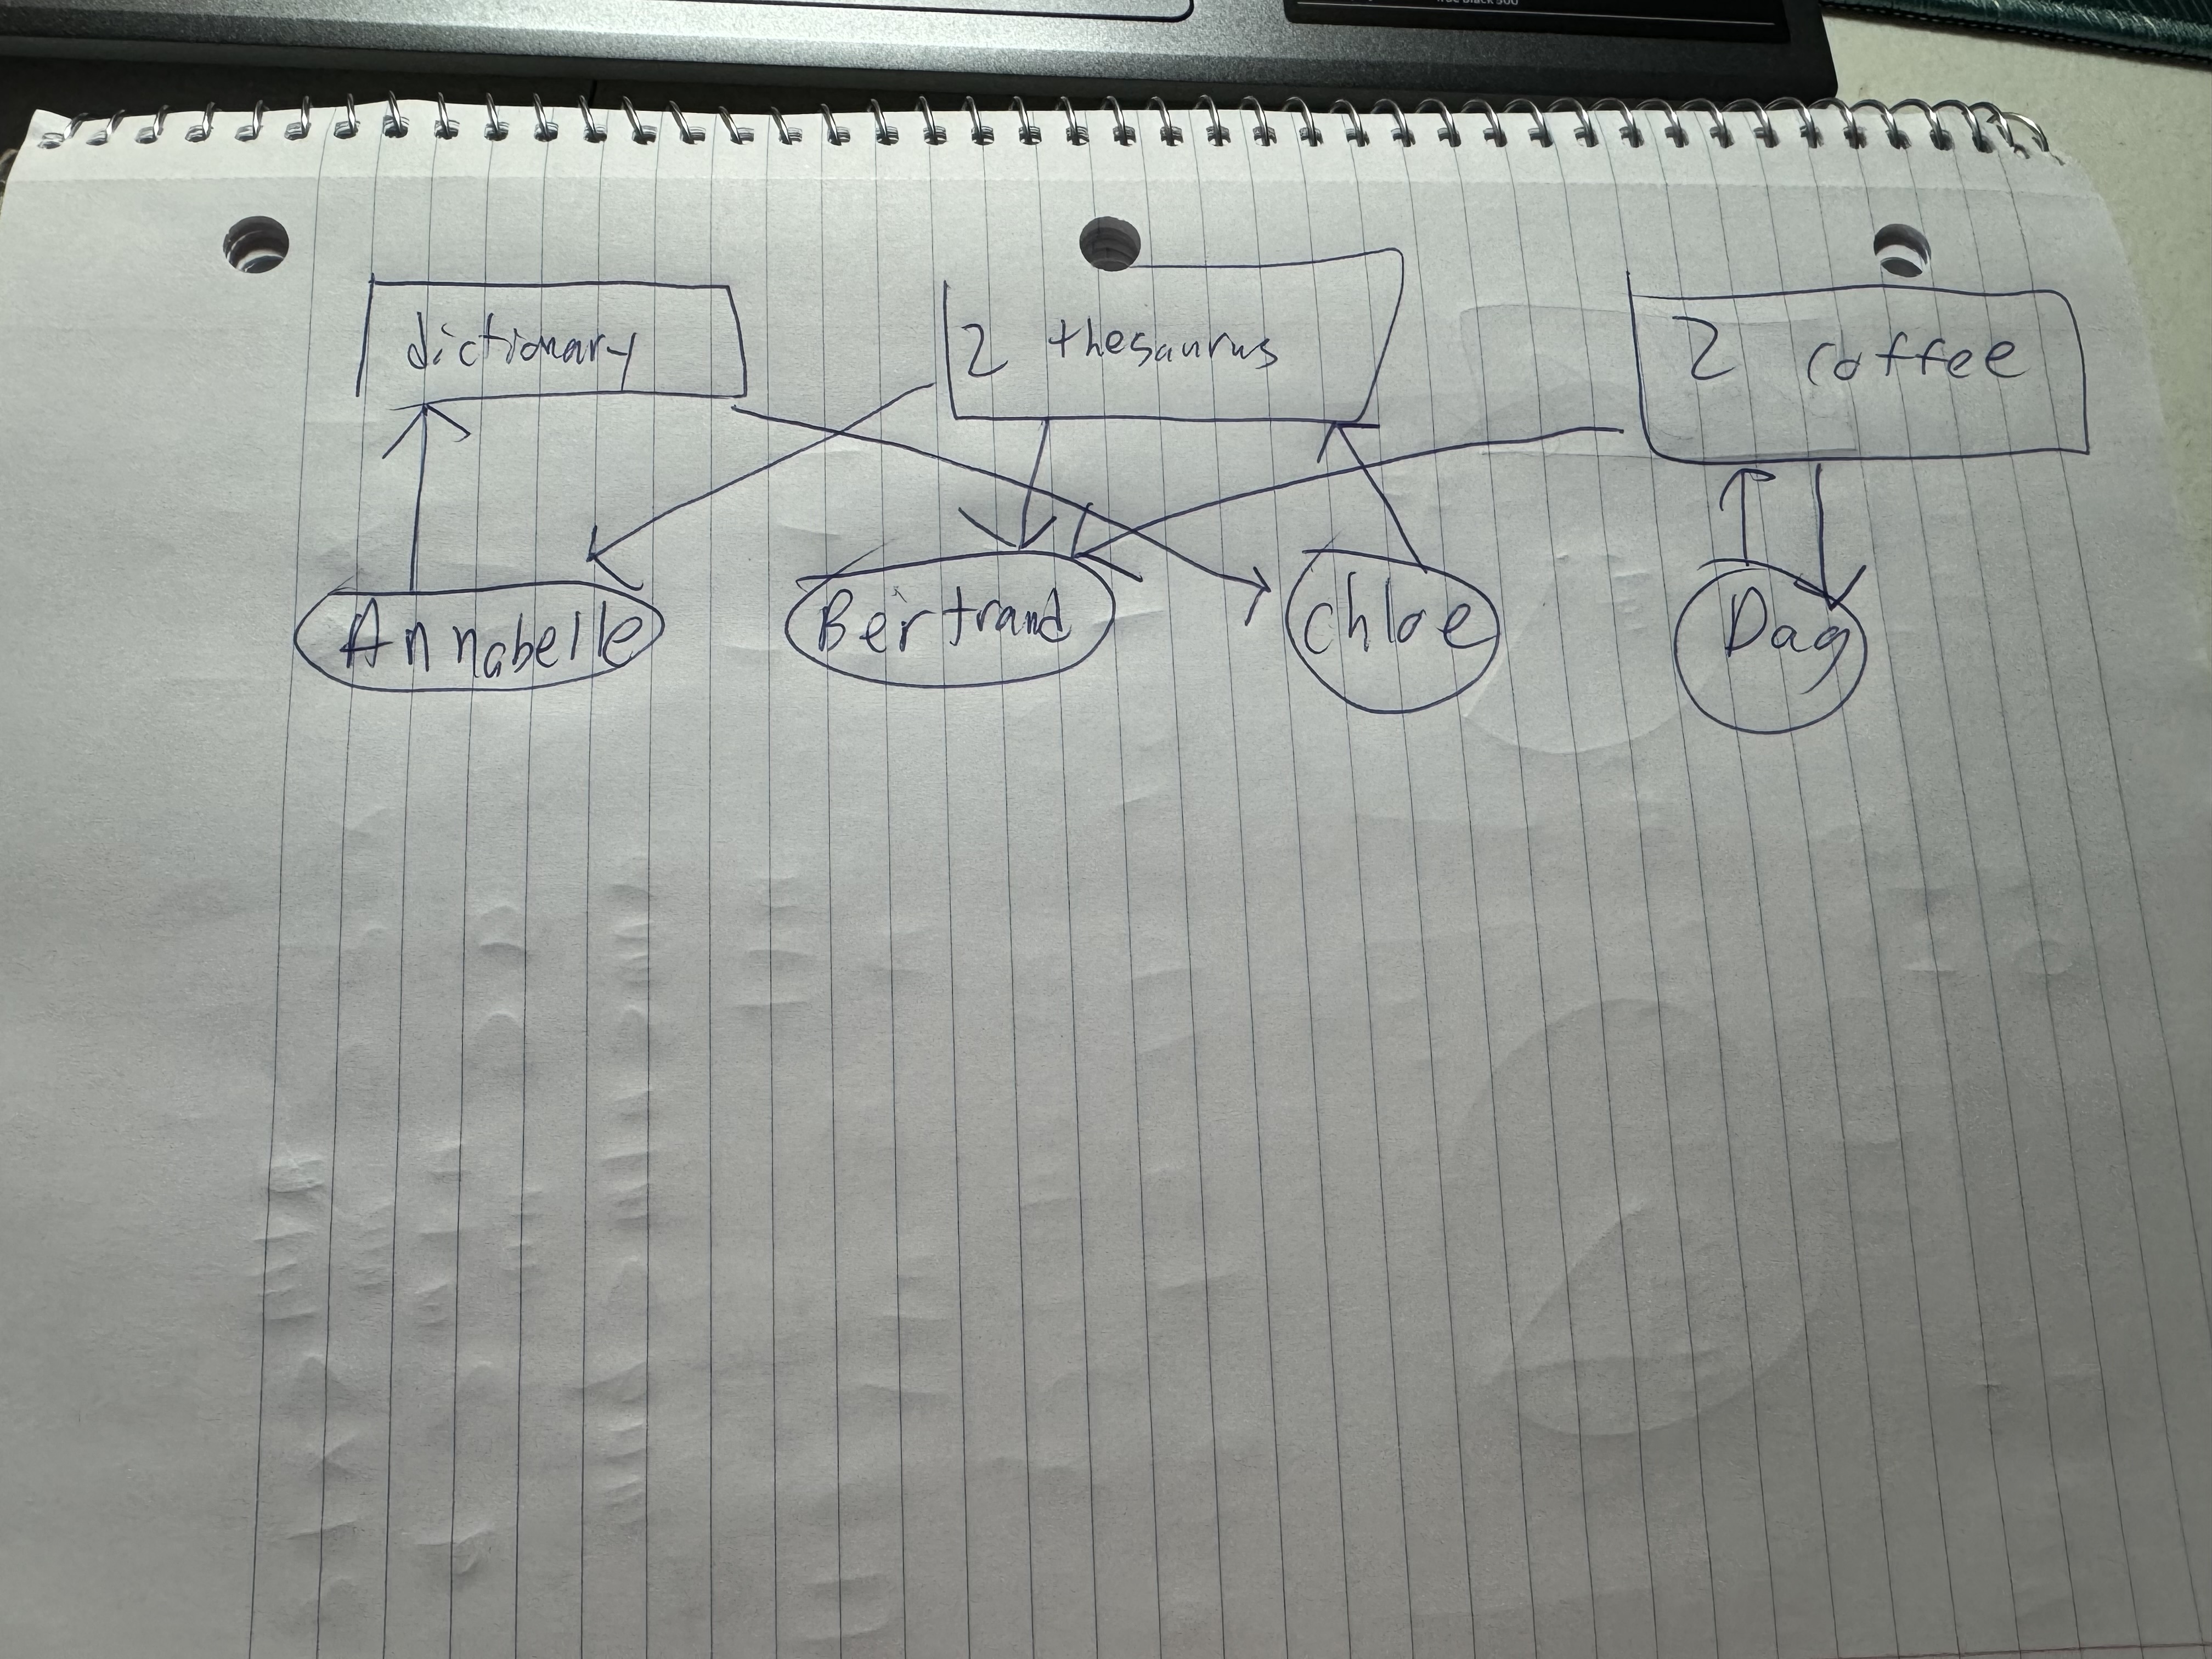 dictionary
2 thesaurus
2 coffee
Annabelle
Bertrand
Chloe
Dag